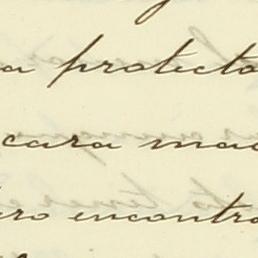 a protecto
cara mad
ero encontra